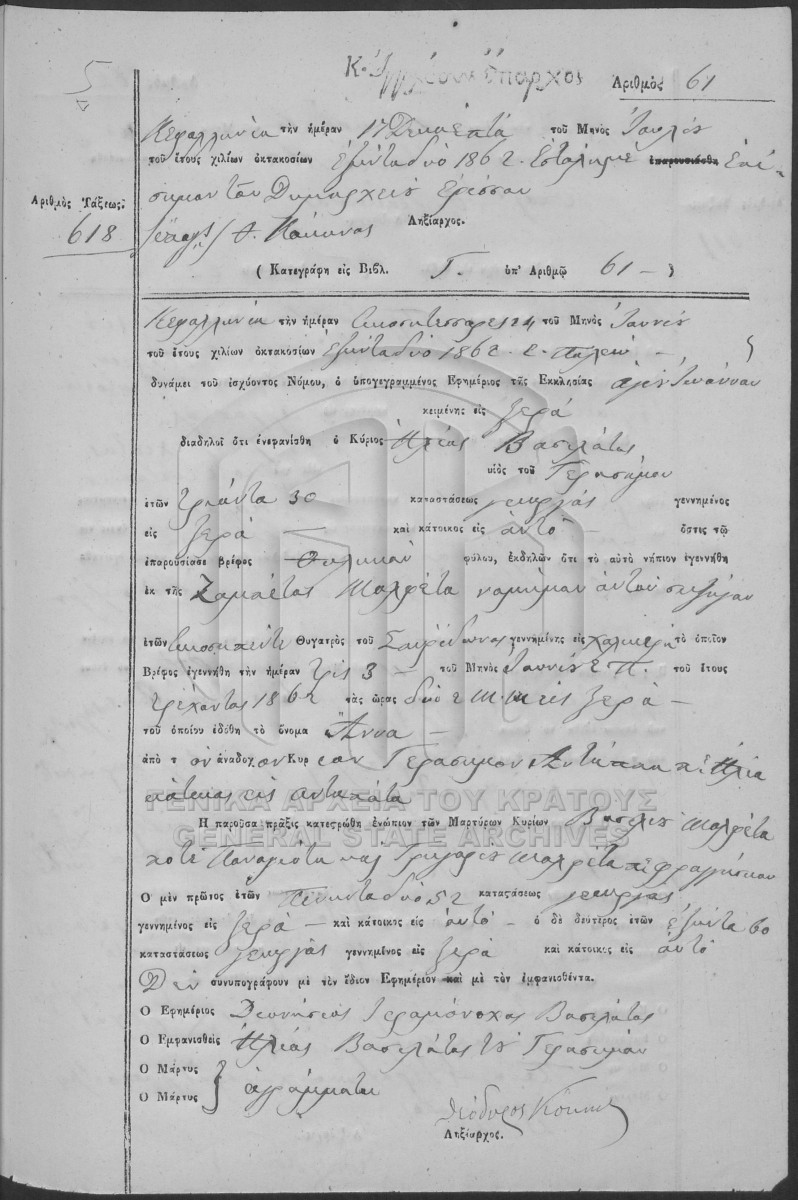 5
Ἀριθμὸς 61
Κεφαλληνία τὴν ἡμέραν 17 Δεκαεπτά τοῦ Μηνὸς Ἰουλίου
τοῦ ἔτους χιλίων ὀκτακοσίων ἑξῆντα δύο 1862. Ἐστάλη ἐπαρουσιάσθη
Δημαρχείου Ἐρίσσου
Ἀριθμὸς Τάξεως:
618
Ληξίαρχος.
( Κατεγράφη εἰς Βιβλ. Γ. ὑπ' Ἀριθμῷ 61 — )
Κεφαλληνία τὴν ἡμέραν εἰκοσιτέσσαρες 24 τοῦ Μηνὸς Ἰουνίου
τοῦ ἔτους χιλίων ὀκτακοσίων ἑξῆντα δύο 1862. Ε. Παλαιόν —
δυνάμει τοῦ ἰσχύοντος Νόμου, ὁ ὑπογεγραμμένος Ἐφημέριος τῆς Ἐκκλησίας ἁγίου Ἰωάννου
κειμένης εἰς Ξερά
διαδηλοῖ ὅτι ἐνεφανίσθη ὁ Κύριος Ἠλίας Βασιλάτος
υἱὸς τοῦ Γερασήμου
ἐτῶν τριάντα 30 καταστάσεως γεωργός γεννημένος
εἰς Ξερά — καὶ κάτοικος εἰς αὐτό — ὅστις τῷ
ἐπαρουσίασε βρέφος θηλυκοῦ φύλου, ἐκδηλῶν ὅτι τὸ αὐτὸ νήπιον ἐγεννήθη
ἐκ τῆς Ζαμαέτας Μολφέτα νομήμου αὐτοῦ συζήγου
ἐτῶν εἰκοσιπέντε Θυγατρὸς τοῦ Σπιρίδωνος γεννημένης εἰς τὸ ὁποῖον
Βρέφος ἐγεννήθη τὴν ἡμέραν τρίς 3 — τοῦ Μηνὸς Ἰουνίου Ε. Π. τοῦ ἔτους
τρέχοντος 1862 τὰς ὥρας δύο 2 Μ. Μ εἰς Ξερά —
τοῦ ὁποίου ἐδόθη τὸ ὄνομα Ἄννα —
ἀπὸ τ ὸν ἀνάδοχ ον Κυρ ιον Γεράσιμον Ἀντίπαν Ἠλία
κάτοικος εἰς Ἀντιπάτα
ΓΕΝΙΚΑ ΑΡΧΕΙΑ ΤΟΥ ΚΡΑΤΟΥΣ
GENERAL STATE ARCHIVES
Ἡ παροῦσα πράξις κατεστρώθη ἐνώπιον τῶν Μαρτύρων Κυρίων Βασιλίου Μολφέτα
ποτὲ Παναγιώτα καὶ Γρηγορίου Μολφέτα π Φραγγίσκου
Ὁ μὲν πρῶτος ἐτῶν πενῆντα δύο 52 καταστάσεως γεωργός
γεννημένος εἰς Ξερά — καὶ κάτοικος εἰς αὐτό — ὁ δὲ δεύτερος ἐτῶν ἑξῆντα 60
καταστάσεως γεωργός γεννημένος εἰς Ξερά καὶ κάτοικος εἰς αὐτό
Δέν συνυπογράφουν μὲ τὸν ἴδιον Ἐφημέριον καὶ μὲ τὸν ἐμφανισθέντα.
Ὁ Ἐφημέριος Διονήσιος Ἱερομόναχος Βασιλάτος
Ὁ Ἐμφανισθεὶς Ἠλίας Βασιλάτος τοῦ Γερασίμου
Ὁ Μάρτυς
Ὁ Μάρτυς } ἀγράμματοι
Ληξίαρχος.